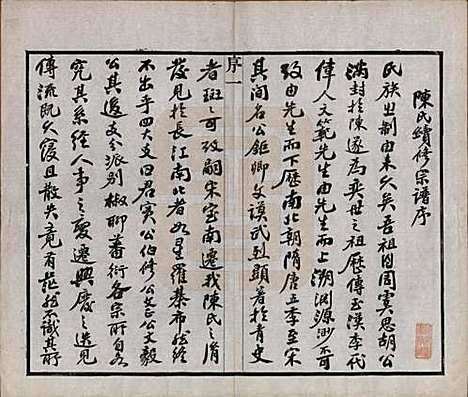 陳氏續修宗譜序
民族出制由來久矣吾祖自周虞思胡公
滿封於陳遂為奕世之祖歷傳至漢季代
偉人文範先生由先生而上溯淵源渺不可
攷由先生而下歷南北朝隋唐五季至宋
其间名公鉅卿文謨武烈顯著於青史
序一
者班班可攷嗣宋室南遷我陳氏之消
發見於長江南北者如星羅棊布然總
不出乎四大支曰君實公伯修公文正公文毅
公其後支分派別椒聊蕃衍各宗所自各
究其系經人事之變遷興廢之迭見
傳流既久寖且散失竟有茫然不識其所